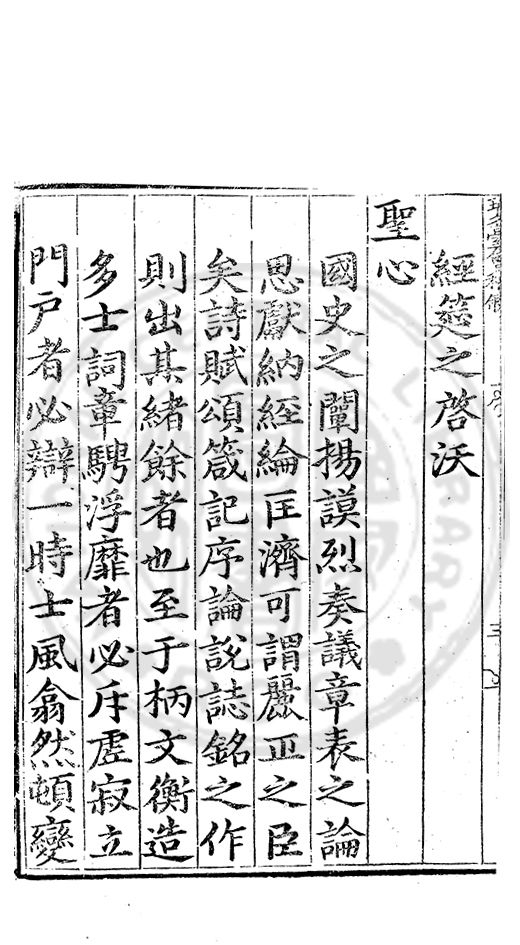 經筵之啓沃
聖心
國史之闡揚謨烈奏議章表之論
思獻納經綸匡濟可謂麗正之臣
矣詩賦頌箴記序論說誌銘之作
則出其緒餘者也至于柄文衡造
多士詞章騁浮靡者必斥虛寂立
門戶者必辯一時士風翕然頓變